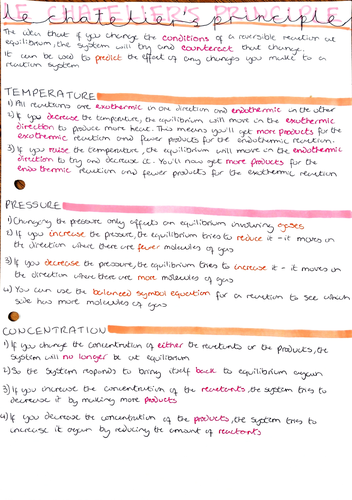 LE CHATELIER'S PRINCIPLE
le chatelier's principle
The idea that if you change the conditions of a reversible reaction at
equilibrium, the system will try and counteract that change.
It can be used to predict the effect of any changes you make to a
reaction system
TEMPERATURE
1) All reactions are exothermic in one direction and endothermic in the other
2) If you decrease the temperature, the equilibrium will move in the exothermic
direction to produce more heat. This means you'll get more products for the
exothermic reaction and fewer products for the endothermic reaction.
3) If you raise the temperature, the equilibrium will move in the endothermic
direction to try and decrease it. You'll now get more products for the
endothermic reaction and fewer products for the exothermic reaction
PRESSURE
1) Changing the pressure only affects an equilibrium involving gases
2) If you increase the pressure, the equilibrium tries to reduce it - it moves in
the direction where there are fewer molecules of gas
3) If you decrease the pressure, the equilibrium tries to increase it - it moves in
the direction where there are more molecules of gas
4) You can use the balanced symbol equation for a reaction to see which
side has more molecules of gas
CONCENTRATION
1) If you change the concentration of either the reactants or the products, the
system will no longer be at equilibrium
2) So the system responds to bring itself back to equilibrium again
3) If you increase the concentration of the reactants, the system tries to
decrease it by making more products
4) If you decrease the concentration of the products, the system tries to
increase it again by reducing the amount of reactants